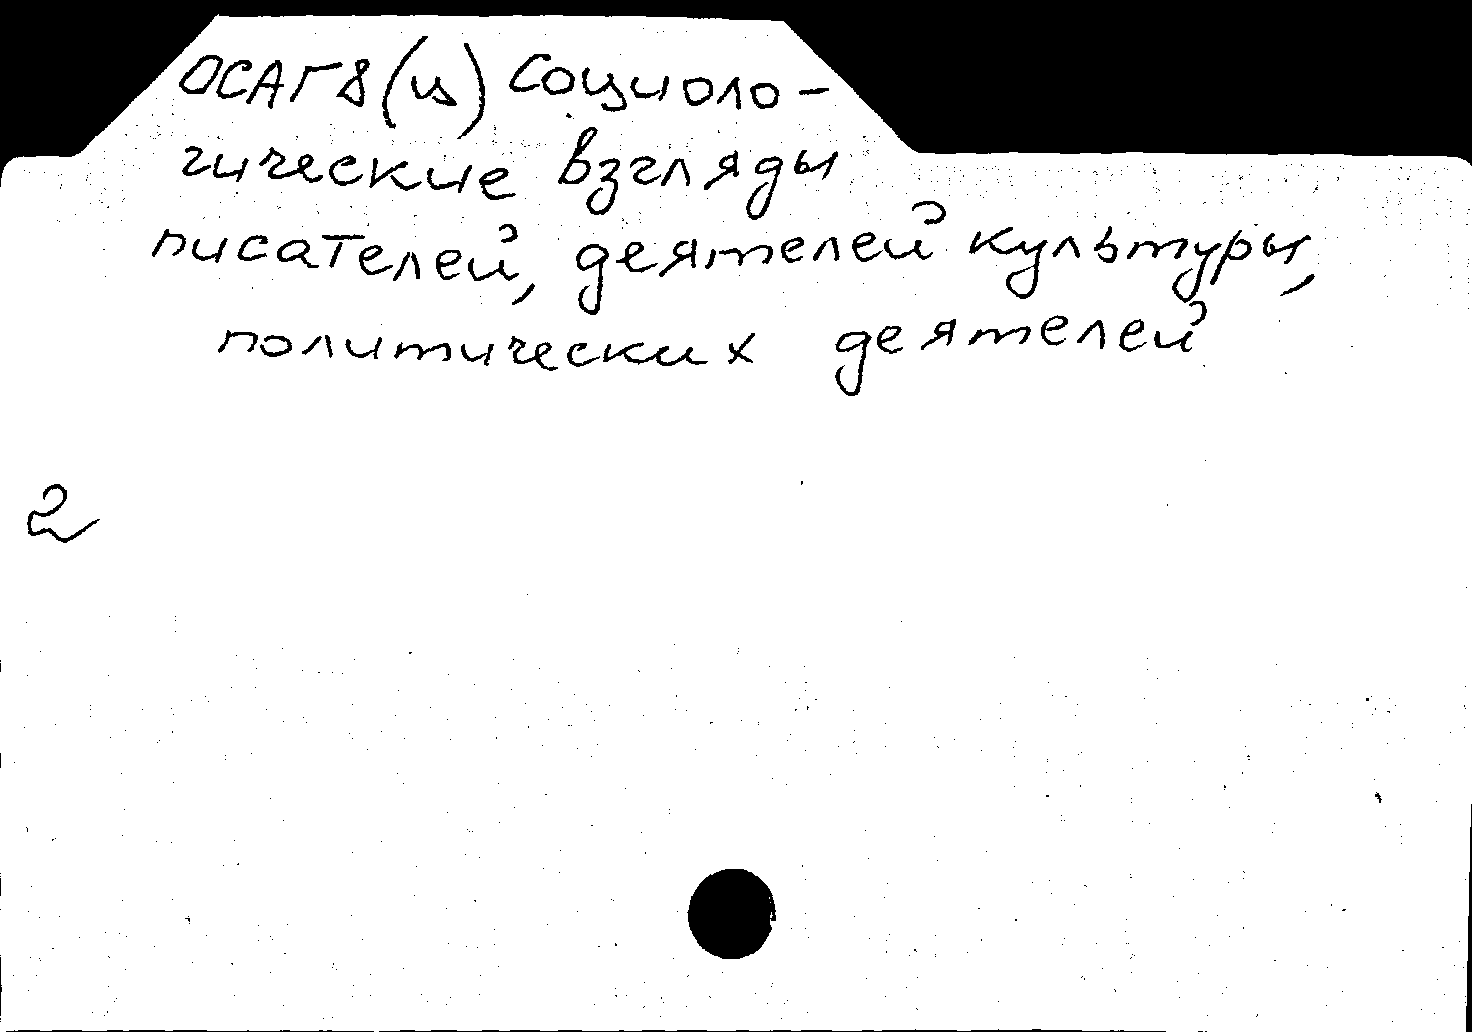 ОСАГ8(ц) Социоло-
гические взгляды
писателей, деятелей культуры,
политических деятелей
2